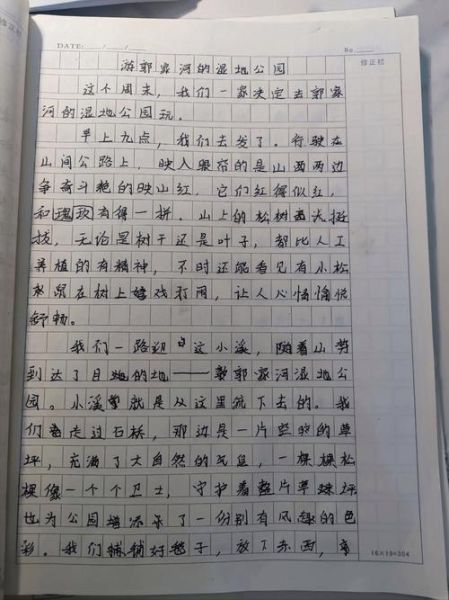 DATE: / /
No
修正栏
游郭家河的湿地公园
这个周末，我们一家决定去郭家
河的湿地公园玩。
早上九点，我们去发了。行驶在
山间公路上，映入眼帘的是山西两边
争奇斗艳的映山红，它们红得似红，
和瑰玫有得一拼。山上的松树高大挺
拔，无论是树干还是叶子，都比人工
养植的有精神，不时还能看见有小松
鼠在树上嬉戏打闹，让人心情愉悦
舒畅。
我们一路迎 这小溪，随着山势
到达了目的地——郭家河湿地公
园。小溪就是从这里流下去的。我
们走过石桥，那边是一片空旷的草
坪，充满了大自然的气息，一棵棵松
棵像一个个卫士，守护着整片草坪
也为公园增添了一份别有风趣的色
彩。我们铺好毯子，放下东西，享
16×19=304